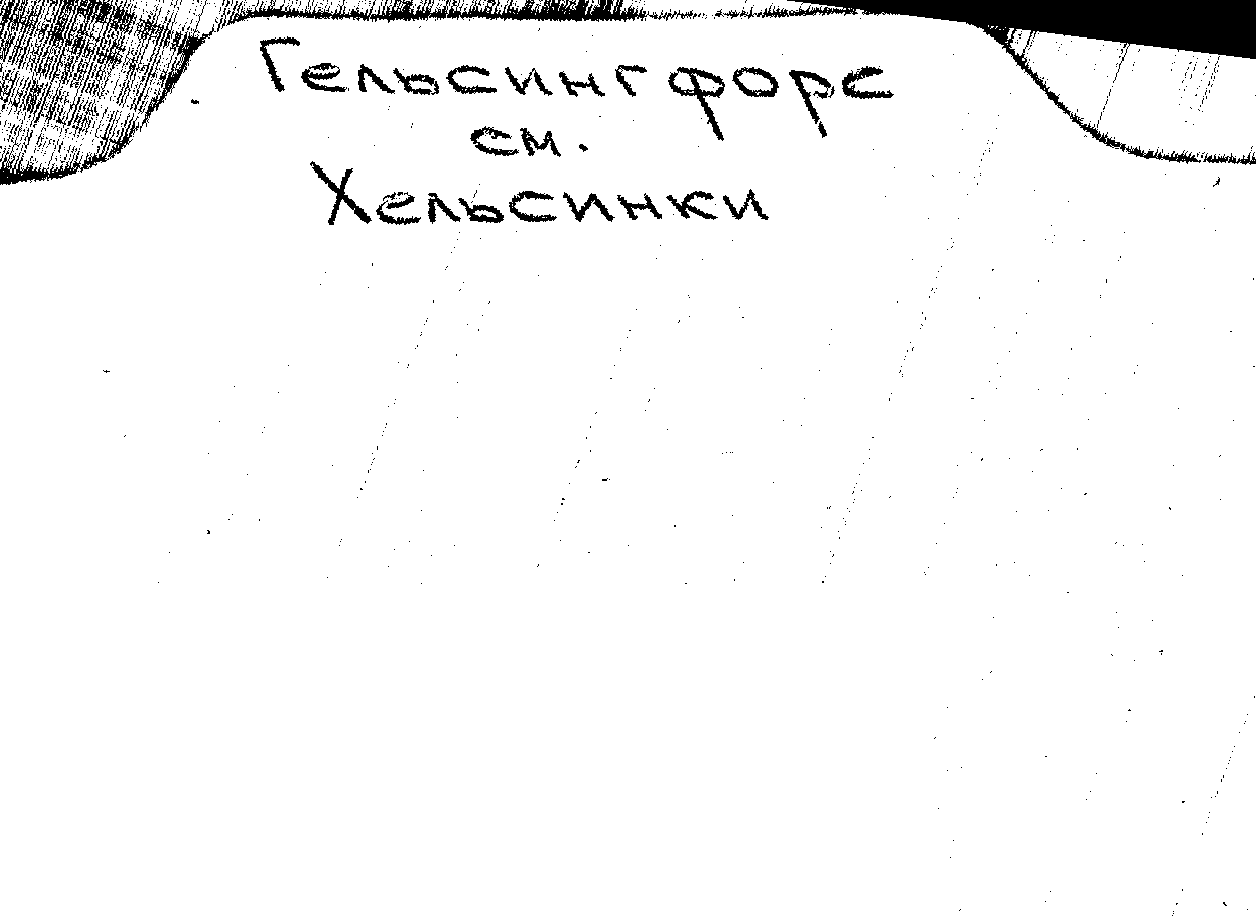 Гельсингфорс
см.
Хельсинки